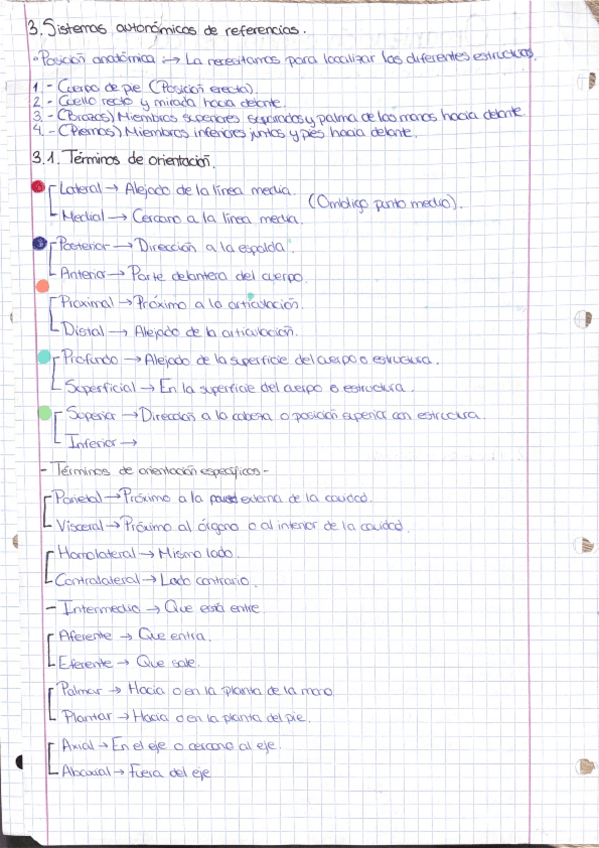 3. Sistemas autonómicos de referencias.
- Posición anatómica :→ La necesitamos para localizar las diferentes estructuras.
1.- Cuerpo de pie (Posición erecta).
2.- Cuello recto y mirada hacia delante.
3.- (Brazos) Miembros superiores separados y palma de las manos hacia delante
4.- (Piernas) Miembros inferiores juntos y pies hacia delante.
3.1. Términos de orientación.
Lateral → Alejado de la línea media.
(Ombligo punto medio).
Medial → Cercano a la línea media.
Posterior → Dirección a la espalda.
Anterior → Parte delantera del cuerpo.
Proximal → Próximo a la articulación.
Distal → Alejado de la articulación.
Profundo → Alejado de la superficie del cuerpo o estructura.
Superficial → En la superficie del cuerpo o estructura.
Superior → Dirección a la cabeza o posición superior con estructura.
Inferior →
- Términos de orientación específicos -
Parietal → Próximo a la pared externa de la cavidad.
Visceral → Próximo al órgano o al interior de la cavidad.
Homolateral → Mismo lado.
Contralateral → Lado contrario.
- Intermedio → Que está entre
Aferente → Que entra.
Eferente → Que sale.
Palmar → Hacia o en la planta de la mano
Plantar → Hacia o en la planta del pie.
Axial → En el eje o cercano al eje.
Abaxial → Fuera del eje